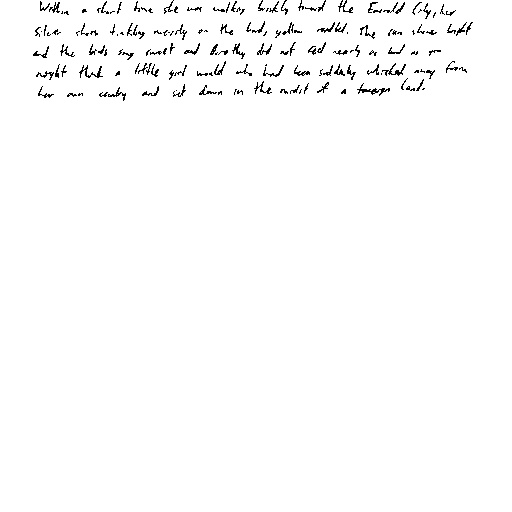 Within a short time she was walking briskly toward the Emerald City, her
silver shoes tinkling merrily on the hard, yellow roadbed. The sun shone bright
and the birds sang sweet and Dorothy did not feel nearly as bad as you
might think a little girl would who had been suddenly whisked away from
her own country and set down in the midst of a foreign land.